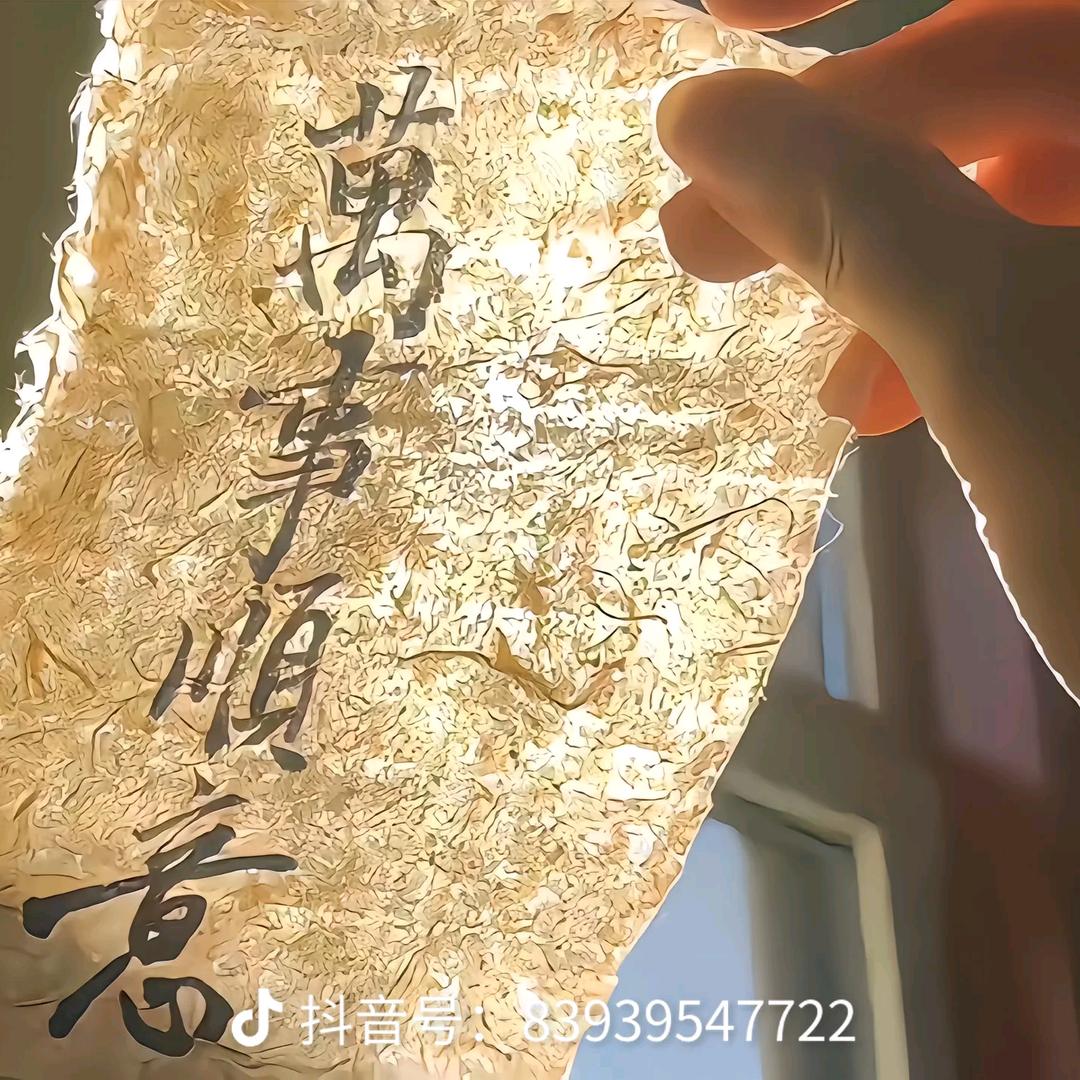 萬事順意
抖音号：83939547722